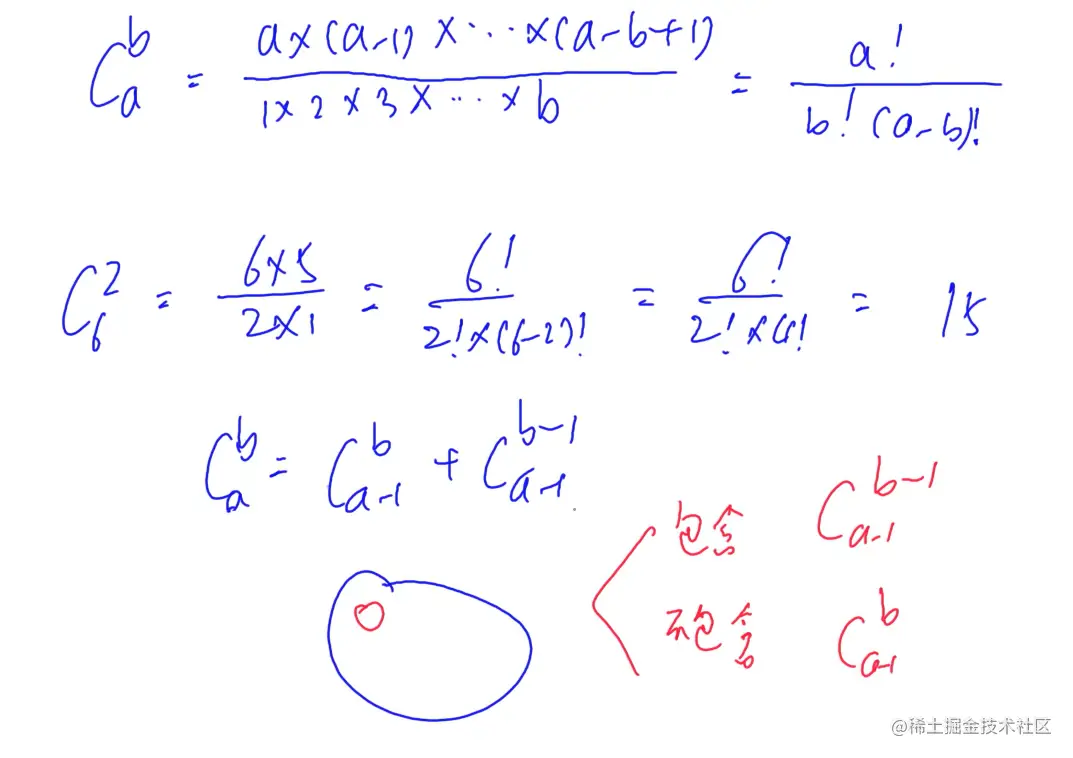 C_a^b = \frac{a×(a-1)×···×(a-b+1)}{1×2×3×···×b} = \frac{a!}{b!(a-b)!}
C_6^2 = \frac{6×5}{2×1} = \frac{6!}{2!×(6-2)!} = \frac{6!}{2!×4!} = 15
C_a^b = C_{a-1}^b + C_{a-1}^{b-1}
包含 C_{a-1}^{b-1}
不包含 C_{a-1}^b
@稀土掘金技术社区